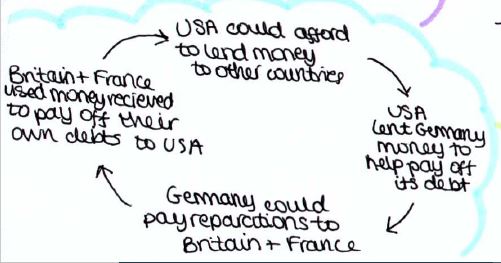 USA could afford
to lend money
to other countries
USA
lent Germany
money to
help pay off
its debt
Germany could
pay reparations to
Britain + France
Britain + France
used money recieved
to pay off their
own debts to USA